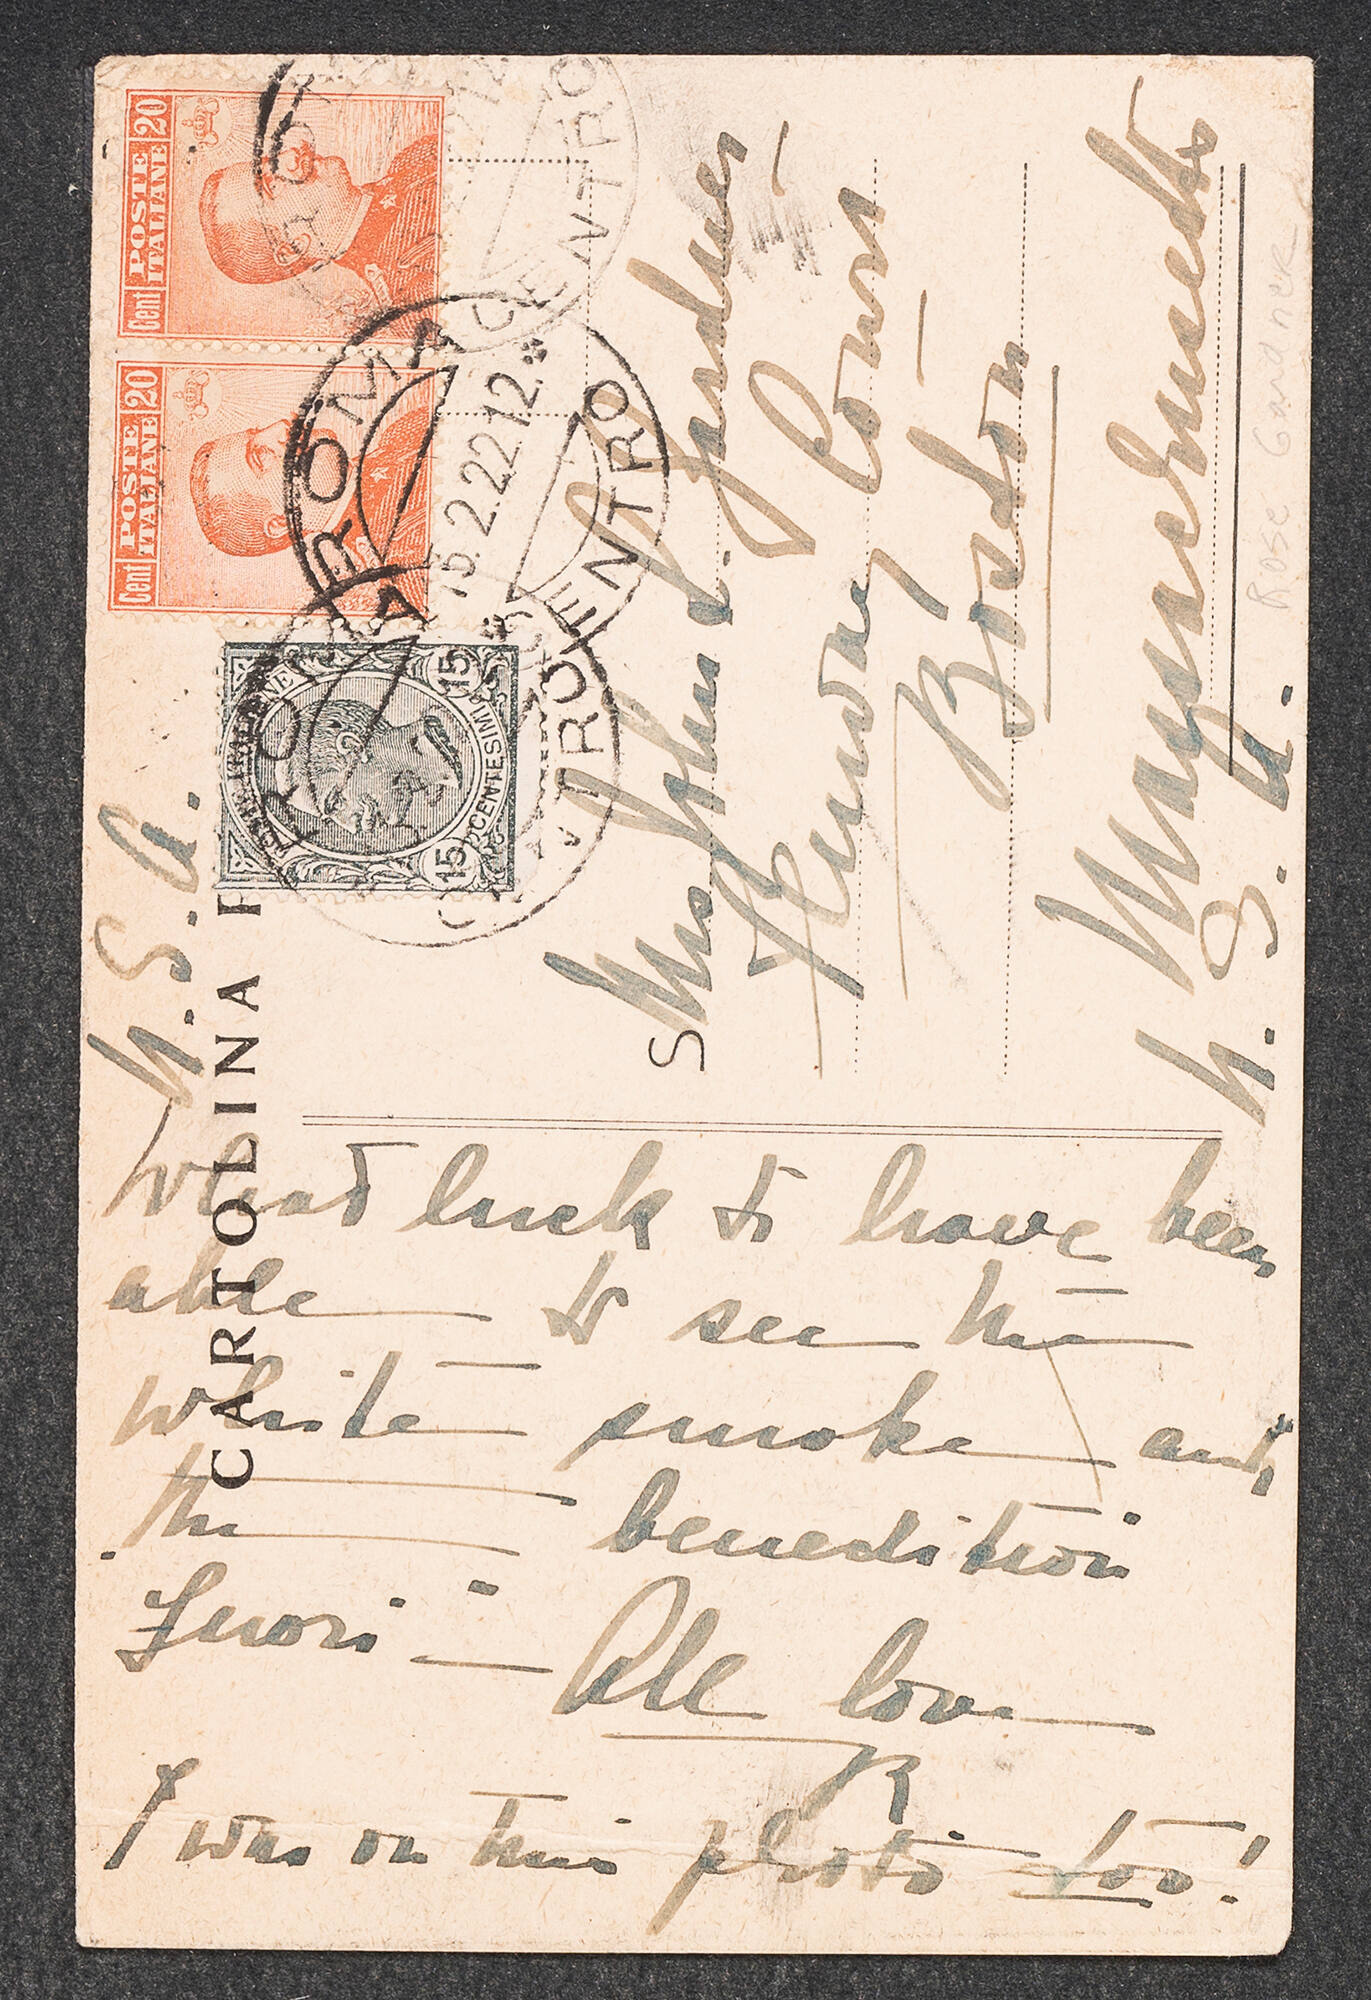 CARTOLINA P
U.S.A.
What luck to have been
able to see the
white smoke and
the benedition
fuori —
All love
R
I was on this photo too!
POSTE
ITALIANE
Cent 20
POSTE
ITALIANE
Cent 20
15 15
CENTESIMI
ROMA CENTRO
15.2.22.12
ROMA CENTRO
S
Mrs John L. Gardner
Fenway Court
Boston
Massachusetts
U.S.A.
Rose Gardner